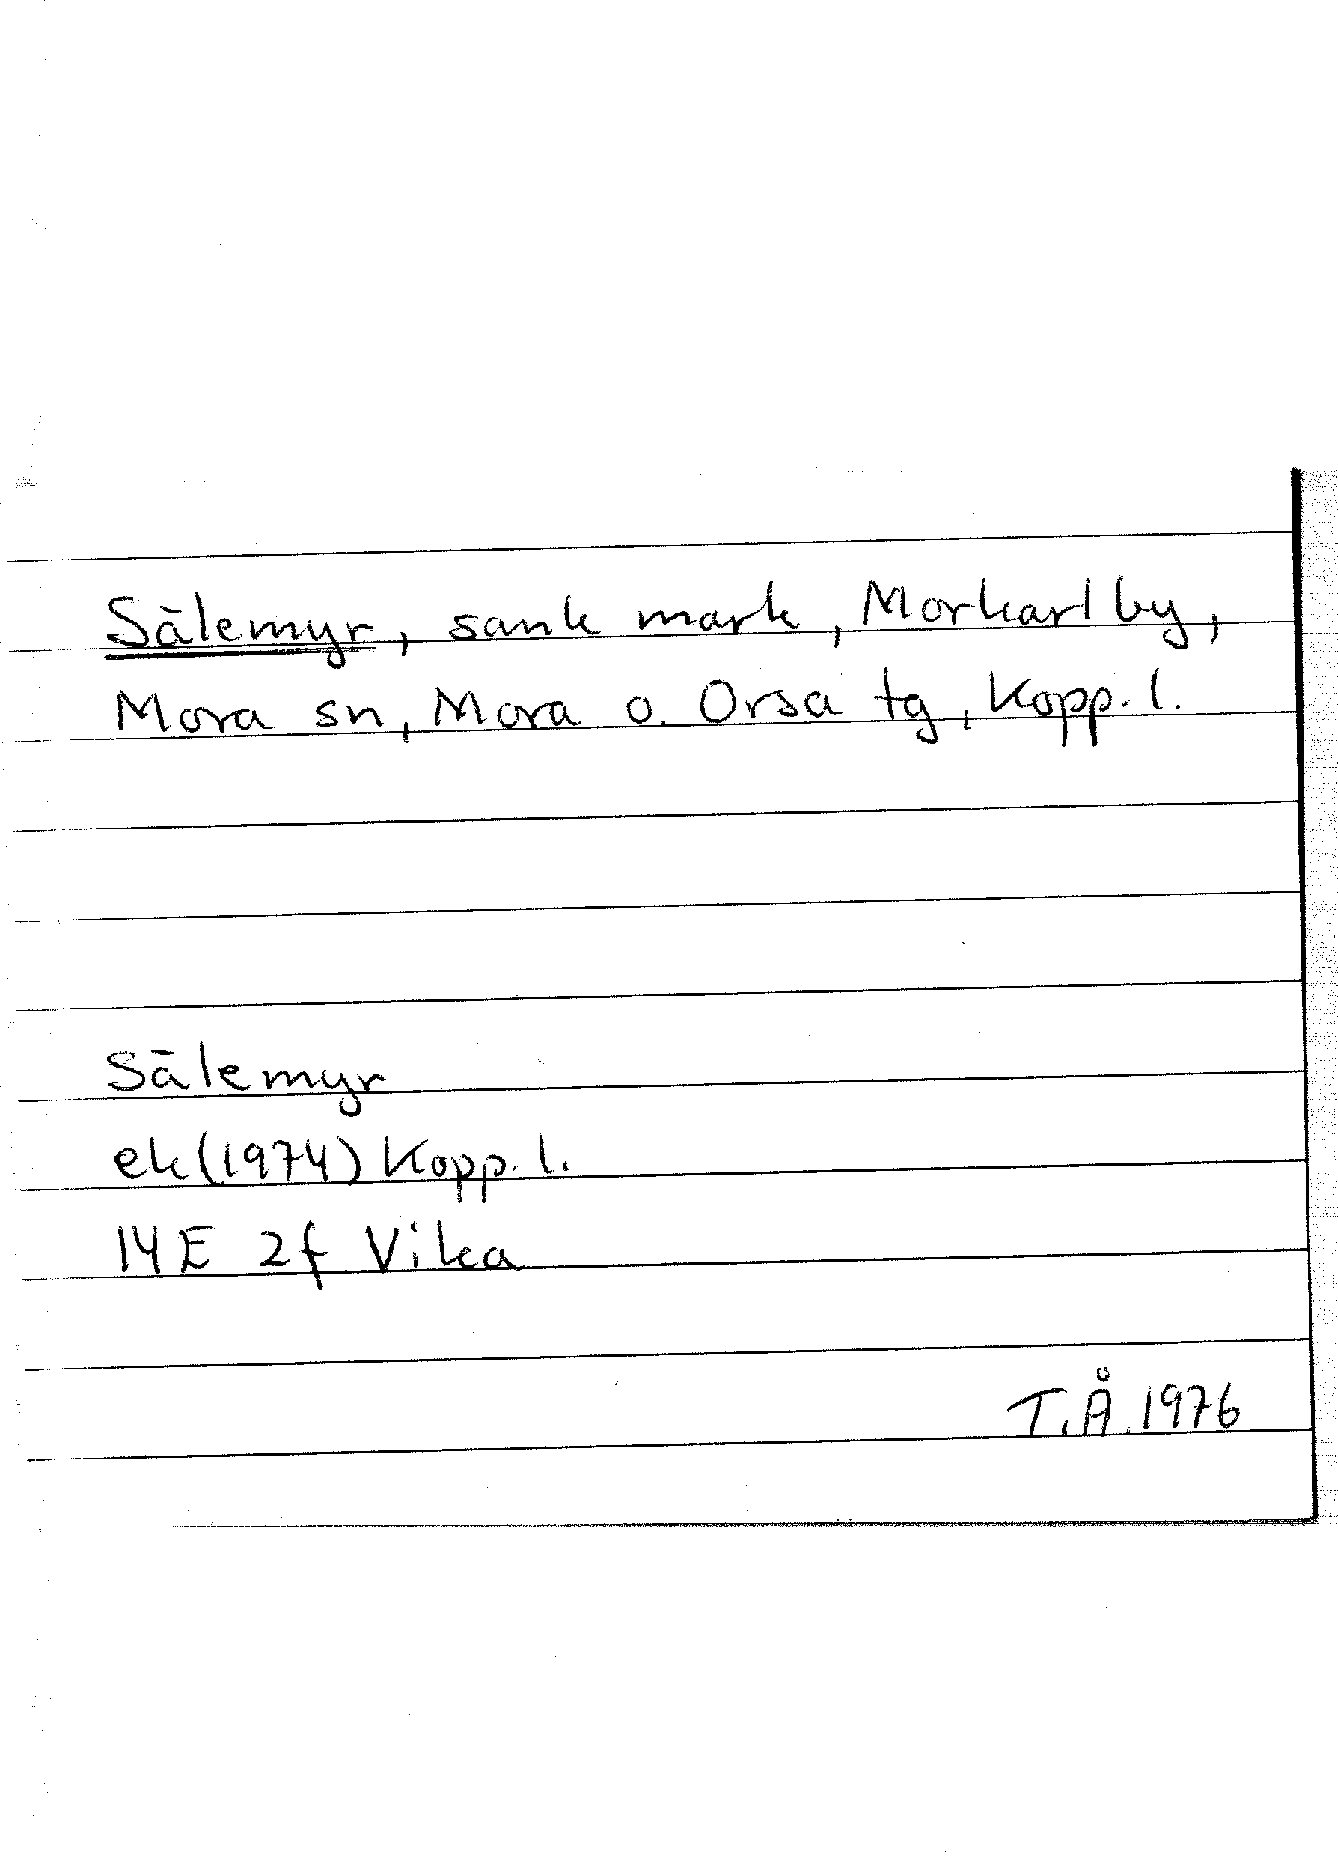 Sälemyr, sank mark, Morkarlby,
Mora sn, Mora o. Orsa tg, Kopp. l.
Sälemyr
ek(1974) Kopp. l.
14E 2f Vika
T.Å. 1976